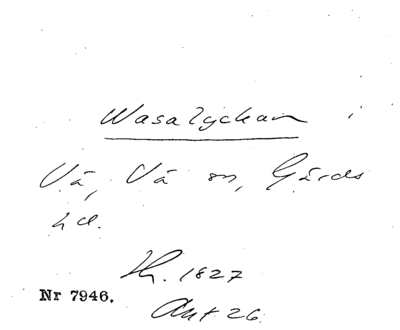 Wasalyckan i
Vä, Vä sn, Gärds
hd.
Th. 1827
Nr 7946.
Akt 26.